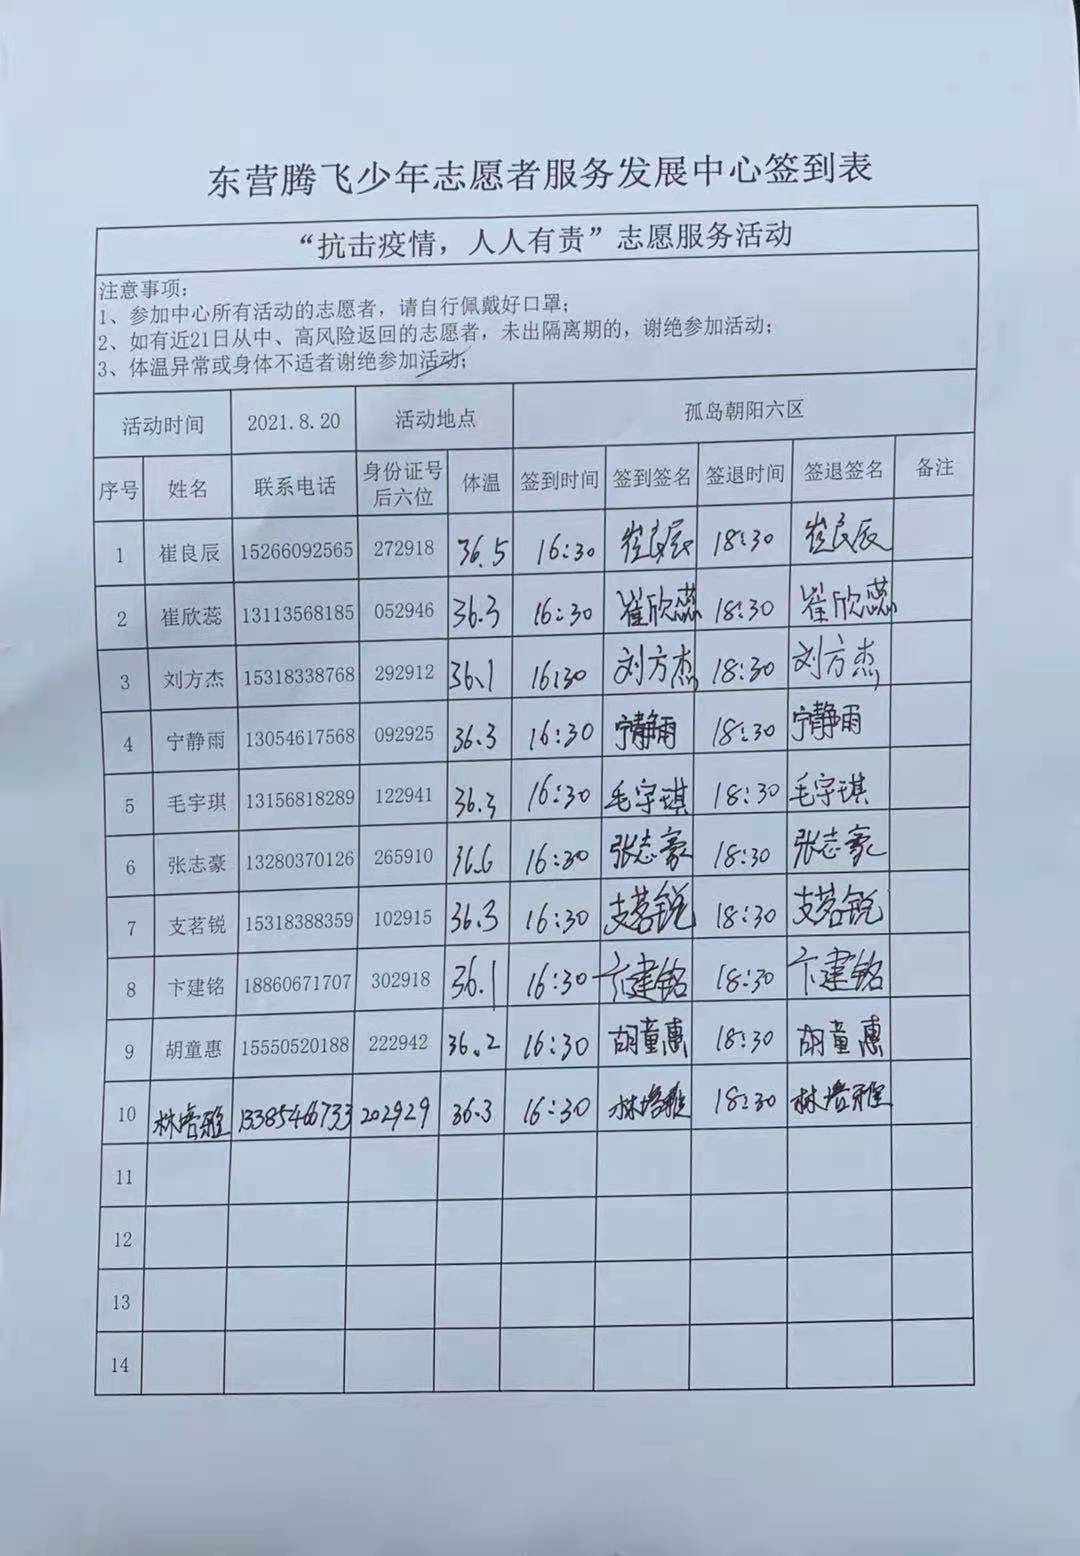 东营腾飞少年志愿者服务发展中心签到表
“抗击疫情，人人有责”志愿服务活动
注意事项：
1、参加中心所有活动的志愿者，请自行佩戴好口罩；
2、如有近21日从中、高风险返回的志愿者，未出隔离期的，谢绝参加活动；
3、体温异常或身体不适者谢绝参加活动；
活动时间 2021.8.20 活动地点 孤岛朝阳六区
序号 姓名 联系电话 身份证号后六位 体温 签到时间 签到签名 签退时间 签退签名 备注
1 崔良辰 15266092565 272918 36.5 16:30 崔良辰 18:30 崔良辰
2 崔欣蕊 13113568185 052946 36.3 16:30 崔欣蕊 18:30 崔欣蕊
3 刘方杰 15318338768 292912 36.1 16:30 刘方杰 18:30 刘方杰
4 宁静雨 13054617568 092925 36.3 16:30 宁静雨 18:30 宁静雨
5 毛宇琪 13156818289 122941 36.3 16:30 毛宇琪 18:30 毛宇琪
6 张志豪 13280370126 265910 36.6 16:30 张志豪 18:30 张志豪
7 支茗锐 15318388359 102915 36.3 16:30 支茗锐 18:30 支茗锐
8 卞建铭 18860671707 302918 36.1 16:30 卞建铭 18:30 卞建铭
9 胡童惠 15550520188 222942 36.2 16:30 胡童惠 18:30 胡童惠
10 13385466733 202929 36.3 16:30 18:30
11
12
13
14